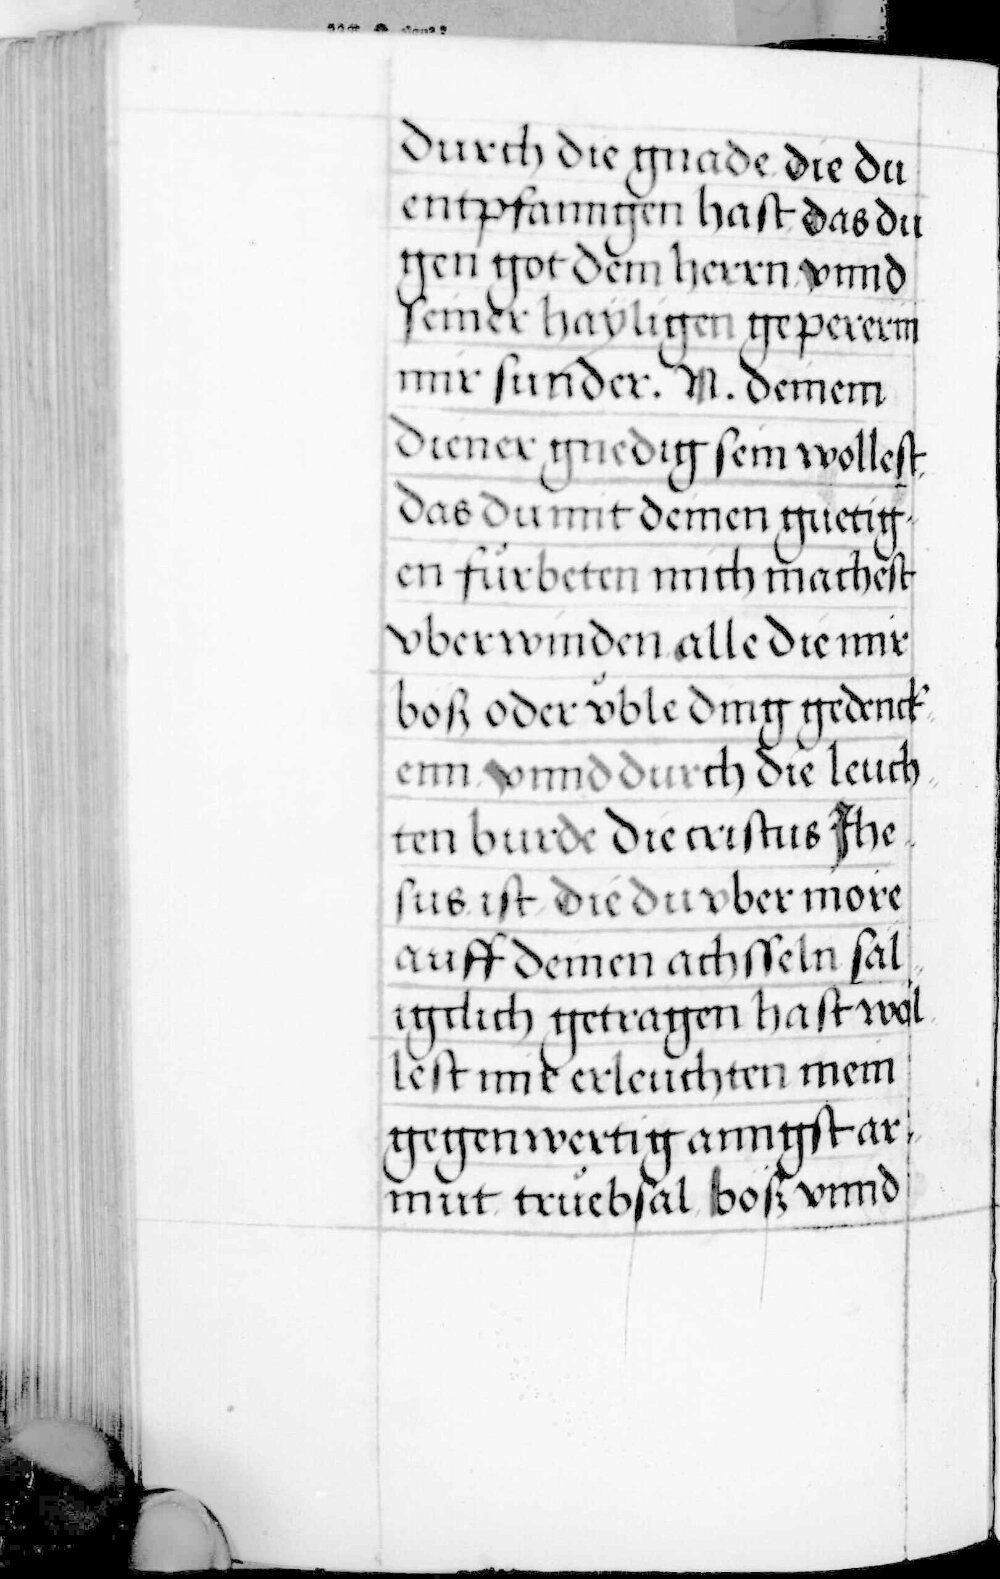 durch die gnade die du
entpfanngen hast das du
gen got dem herrn vnnd
seiner hayligen gepererin
mir sunder. N. deinem
diener gnedig sein wollest
das du mit deinen guetig-
en fürbeten mich machest
vberwinden alle die mir
boß oder vͦble ding gedenck-
enn vnnd durch die leuch-
ten burde die cristus Jhe-
sus ist die du vber more
auff deinen achsseln sal-
igclich getragen hast wol-
lest mir erleuchten mein
gegenwertig anngst ar-
mut truͦebsal böß vnnd